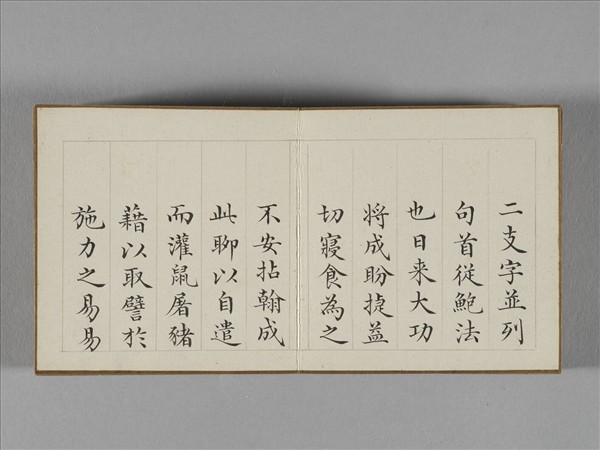 二支字並列
句首從鮑法
也日来大功
将成盼捷益
切寢食為之
不安拈翰成
此聊以自遣
而灌鼠屠豬
藉以取譬於
施力之易易